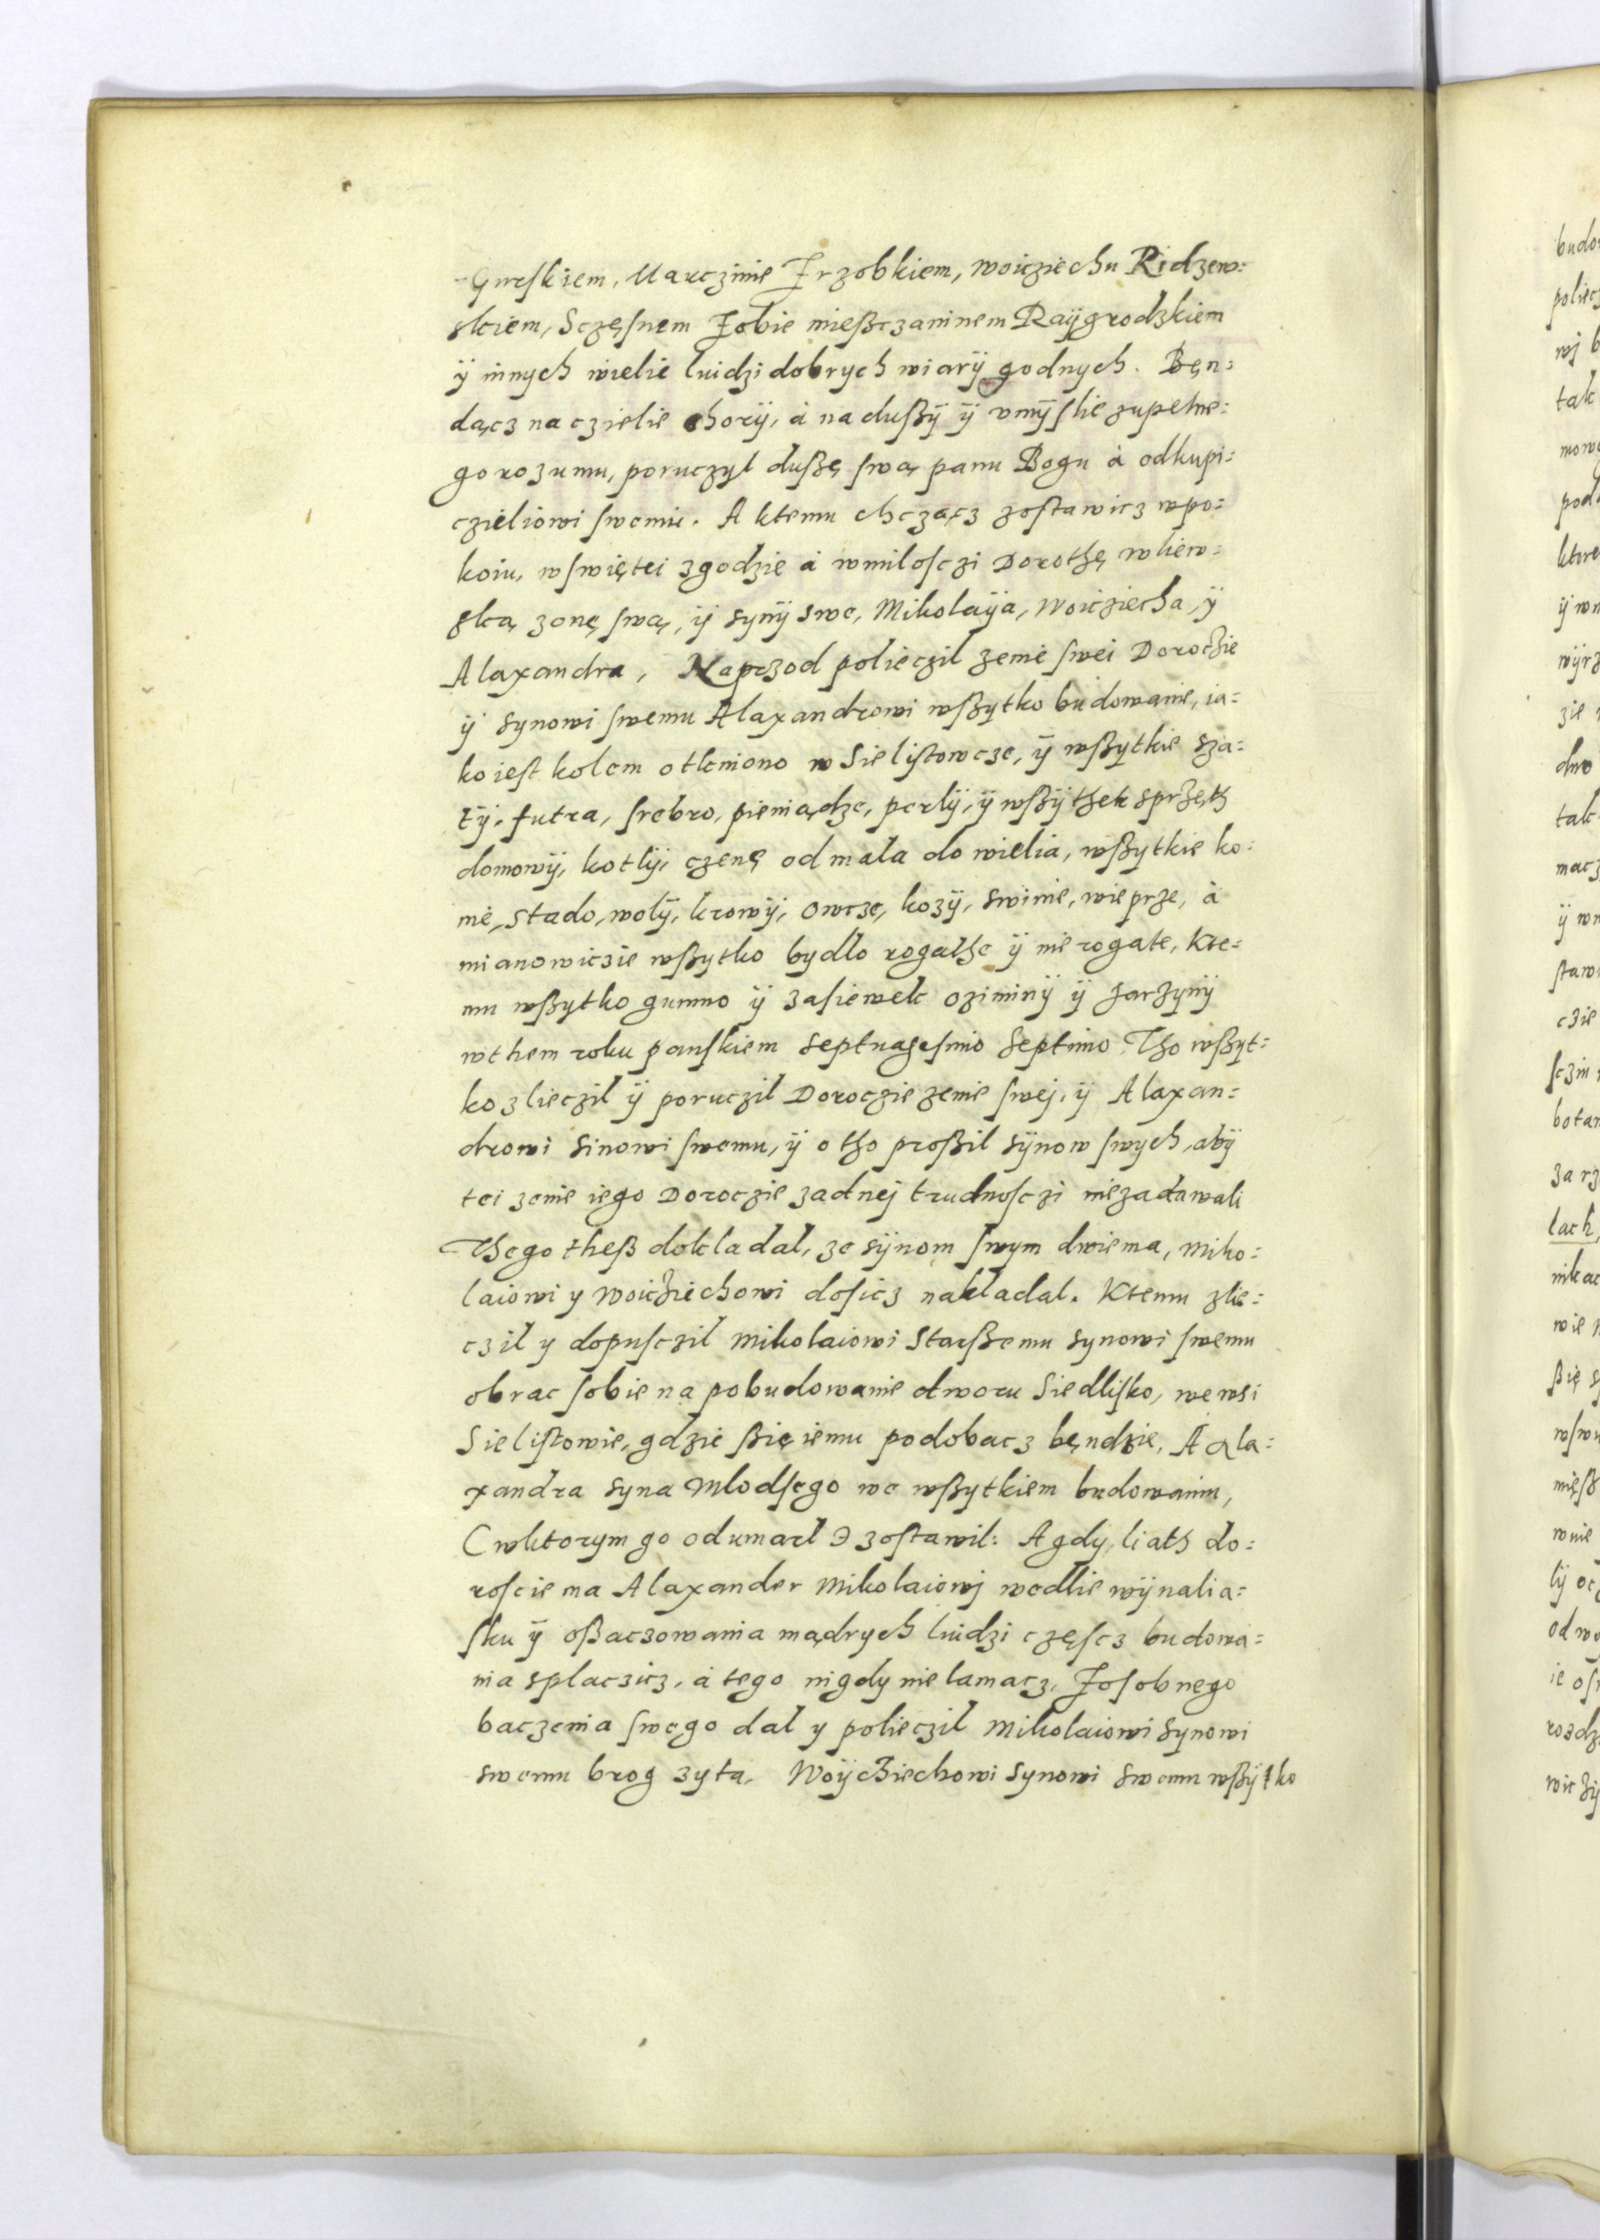 Gurskiem, Marczinie Jrzobkiem, Woicziechu Ridzew=
skiem, Sczęsnem Jobie mießczaninem Raÿgrodzkiem
ÿ innych wielie luidzi dobrych wiarÿ godnych. Bęn=
dącz na czielie chorÿ, à na dußÿ ÿ vmÿslie zupełne=
go rozumu, poruczył dußę swą panu Bogu à odkupi=
czieliowi swemu. A ktemu chcząцz zostawicz wpo=
koiu, wswiętei zgodzie à wmiłosczi Dorothę wliew=
ską zonę swą, ÿ synÿ swe, Mikolaÿa, Woicziecha, ÿ
Alaxandra, Naprzod polieczil zenie swei Doroczie
ÿ synowi swemu Alaxandrowi wßytko budowanie, ia=
ko iest kolem otkniono w Sielistowcze, ÿ wßytkie sza=
tÿ, futra, srebro, pieniądze, perlÿ, ÿ wßÿthek sprzęth
domowÿ, kotlÿ, czenę od mala do wielia, wßytkie ko=
nie, stado, wolÿ, krowÿ, owcze, kozÿ, swinie, wieprze, à
mianowiczie wßytko bydlo rogathe ÿ nie rogate, kte=
mu wßytko gumno ÿ zasiewek oziminÿ ÿ jarzynÿ
wthem roku panskiem septuagesimo septimo Tho wßyt=
ko zlieczil ÿ poruczil Doroczie zenie swej, ÿ Alaxan=
drowi sinowi swemu, ÿ o tho proßil sÿnow swych, abÿ
tei zenie iego Doroczie zadnej trudnosczi niezadawali
Thego theß dokladal, ze sÿnom swym dwiema, Miko=
laiowi y Woicziechowi dosicz nakladal. Ktemu zlie=
czil y dopusczil Mikolaiowi starßemu synowi swemu
obrac sobie na pobudowanie dworu siedlisko, we wsi
Sielistowie, gdzie ßię iemu podobacz będzie, A Ala=
xandra syna mlodsego we wßytkiem budowaniu,
(wktorym go odumarl) zostawil: A gdy, liath do=
roscie ma Alaxander Mikolaiowj wedlie wÿnalia=
sku ÿ oßaczowania mądrych luidzi częscz budowa=
nia splaczicz, à tego nigdy nie lamacz, Josobnego
baczenia swego dal y polieczil Mikolaiowi synowi
swemu brog zyta. Woÿcziechowi synowi swemu wßÿtko